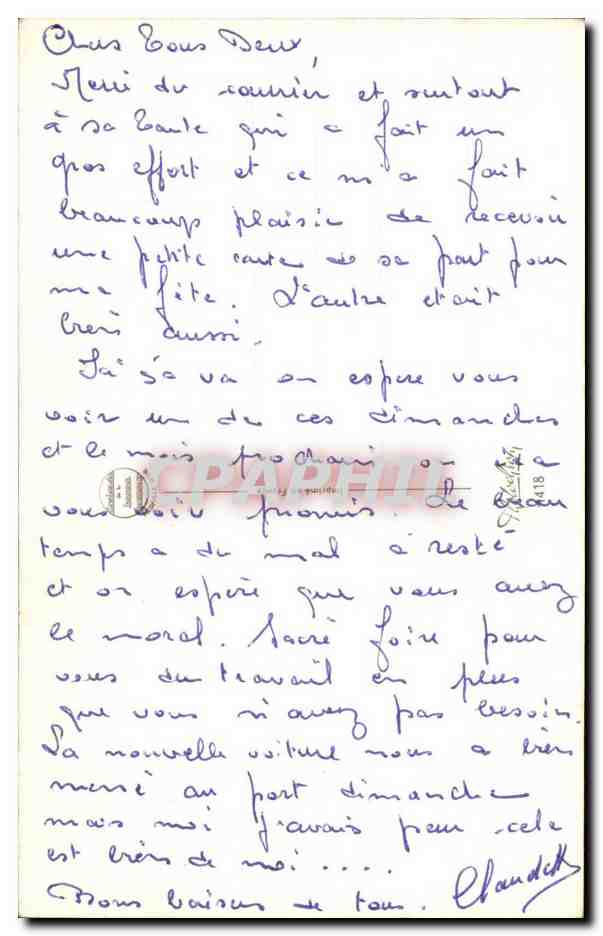 Chers Tous Deux,
Merci du courrier et surtout
à sa Tante qui a fait un
gros effort et ce m'a fait
beaucoup plaisir de recevoir
une petite carte de sa part pour
ma fête. L'autre etait
bien aussi.
Si ça va on espere vous
voir un de ces dimanches
et le mois prochain on ira
vous voir promis. Le beau
temps a du mal à resté
et on espere que vous avez
le moral. Sacré foire pour
vous du travail en plus
que vous n'avez pas besoin.
La nouvelle voiture nous a bien
mené au port dimanche
mais moi j'avais peur cela
est bien de moi ....
Bons baisers de tous. Claudette
CPAPHIL
Imprimé en France
1418